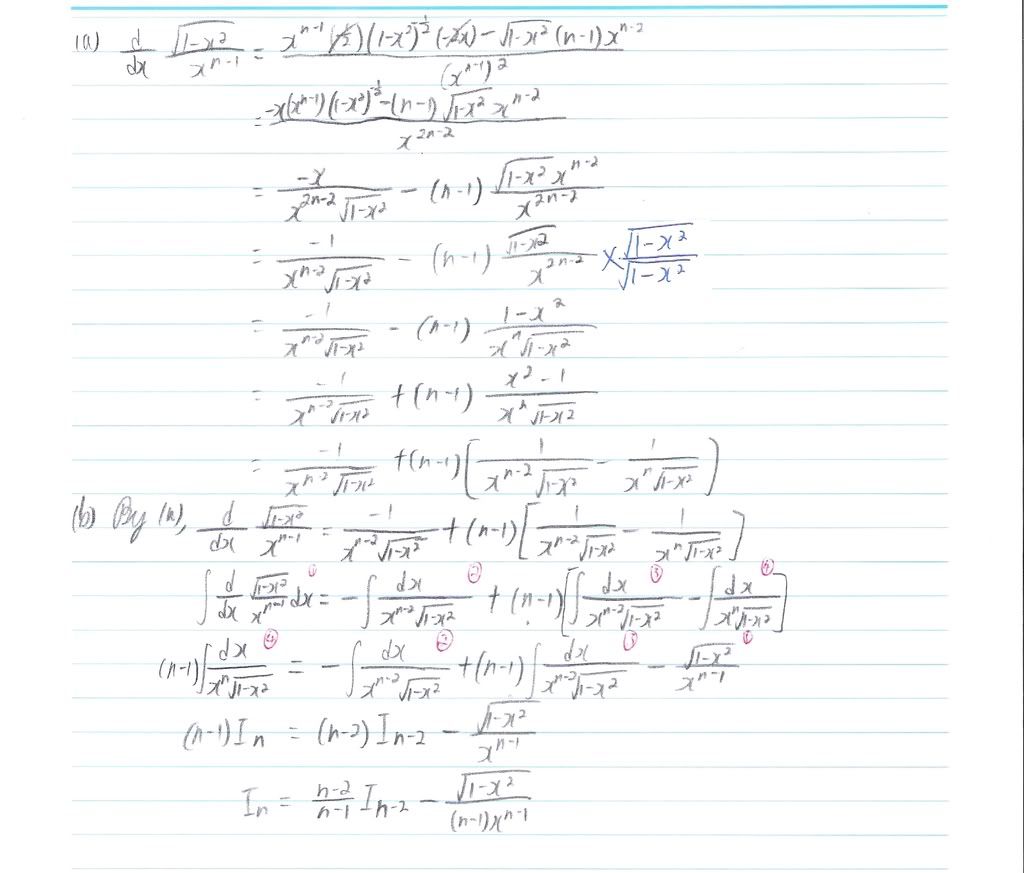 (a) d/dx √(1-x²)/x^(n-1) = [x^(n-1) (1/2)(1-x²)^(-1/2) (-2x) - √(1-x²) (n-1) x^(n-2)]/(x^(n-1))²
= [-x(x^(n-1))(1-x²)^(-1/2) - (n-1)√(1-x²) x^(n-2)]/x^(2n-2)
= -x/(x^(2n-2) √(1-x²)) - (n-1) √(1-x²) x^(n-2)/x^(2n-2)
= -1/(x^(n-2) √(1-x²)) - (n-1) √(1-x²)/x^(2n-2) × √(1-x²)/√(1-x²)
= -1/(x^(n-2) √(1-x²)) - (n-1) (1-x²)/(x^n √(1-x²))
= -1/(x^(n-2) √(1-x²)) + (n-1) (x²-1)/(x^n √(1-x²))
= -1/(x^(n-2) √(1-x²)) + (n-1)[1/(x^(n-2) √(1-x²)) - 1/(x^n √(1-x²))]
(b) By (a), d/dx √(1-x²)/x^(n-1) = -1/(x^(n-2) √(1-x²)) + (n-1)[1/(x^(n-2) √(1-x²)) - 1/(x^n √(1-x²))]
∫ d/dx √(1-x²)/x^(n-1) dx ① = -∫ dx/(x^(n-2) √(1-x²)) ② + (n-1)[∫ dx/(x^(n-2) √(1-x²)) ③ - ∫ dx/(x^n √(1-x²)) ④]
(n-1)∫ dx/(x^n √(1-x²)) ④ = -∫ dx/(x^(n-2) √(1-x²)) ② + (n-1)∫ dx/(x^(n-2) √(1-x²)) ③ - √(1-x²)/x^(n-1) ①
(n-1) I_n = (n-2) I_(n-2) - √(1-x²)/x^(n-1)
I_n = (n-2)/(n-1) I_(n-2) - √(1-x²)/((n-1)x^(n-1))